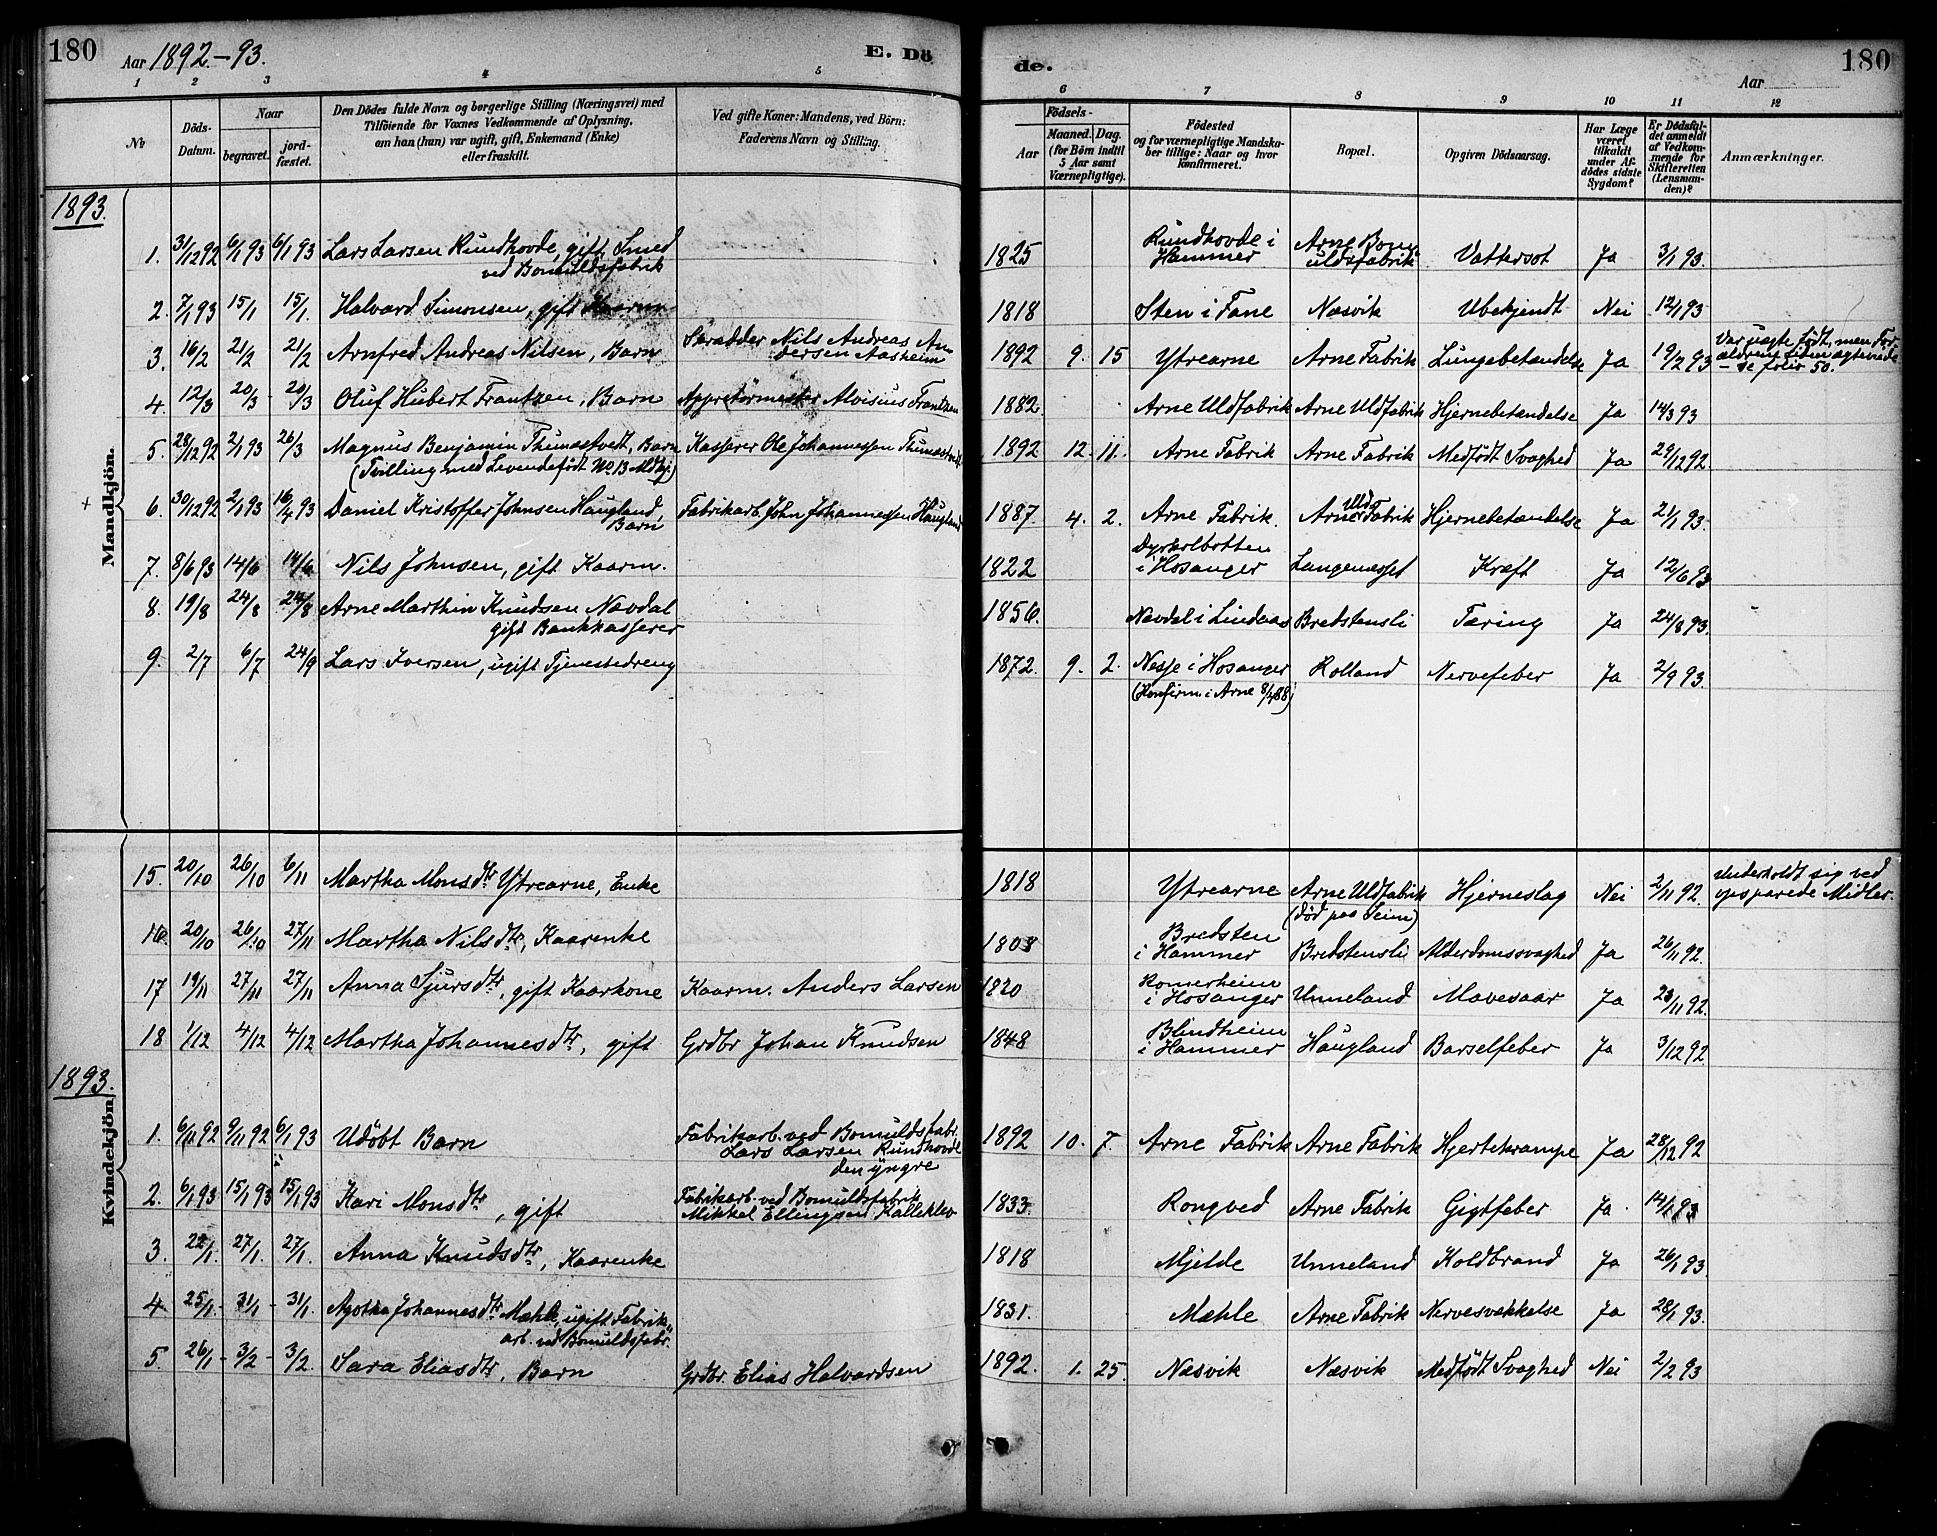 180 Aar 1892.-93. E. Dö
1 2 3 4 5
No
Döds-Datum.
Naar
begravet. jord-fæstet.
Den Dödes fulde Navn og borgerlige Stilling (Næringsvei) med
Tilföiende for Voxnes Vedkommende af Oplysning,
om han (hun) var ugift, gift, Enkemand (Enke)
eller fraskilt.
Ved gifte Koner: Mandens, ved Börn:
Faderens Navn og Stilling.
1893.
Mandkjön.
1. 31/12 92 6/1 93 6/1 93 Lars Larsen Rundhovde, gift Smed
ved Bomuldsfabrik
2. 7/1 93 15/1 15/1. Halvard Simonsen, gift Kaarm
3. 16/2 21/2 21/2 Arnfred Andreas Nilsen, Barn Skrædder Nils Andreas An-
dersen Aasheim
4. 12/3 20/3 20/3 Oluf Hubert Frantzen, Barn Appretörmester Aloisius Frantzen
5. 28/12 92 2/1 93 26/3 Magnus Benjamin Thunestvedt, Barn Kasserer Ole Johannessen Thunestvedt
(Tvilling med Levendefödt No 13 Mdkj)
6. 30/12 92 2/1 93 16/4 93 Daniel Kristoffer Johnsen Haugland, Fabrikarb. John Johannessen Haugland
Barn
7. 8/6 93 14/6 14/6 Nils Johnsen, gift Kaarm.
8. 19/8 24/8 24/8 Arne Marthin Knudsen Nævdal
gift Bankkasserer
9. 2/7 6/7 24/9 Lars Iversen, ugift Tjenestedreng
15. 20/10 26/10 6/11 Martha Monsdtr Ytrearne, Enke
16. 20/10 26/10 27/11 Martha Nilsdtr, Kaarenke
17 19/11 27/11 27/11 Anna Sjursdtr, gift Kaarkone Kaarm. Anders Larsen
18 1/12 4/12 4/12 Martha Johannesdtr, gift Grdbr Johan Knudsen
1893.
Kvindekjön.
1. 6/11 92 9/11 92 6/1 93 Udöbt Barn Fabrikarb. ved Bomuldsfabr.
Lars Larsen Rundhovde
den yngre
2. 6/1 93 15/1 93 15/1 93 Kari Monsdtr, gift Fabrikarb. ved Bomuldsfabrik
Mikkel Ellingsen Kalleklev
3. 22/1. 27/1. 27/1. Anna Knudsdtr, Kaarenke
4 25/1. 31/1 31/1. Agotha Johannesdtr Mæhle, ugift Fabrik-
arb. ved Bomuldsfabr.
5. 26/1 3/2 3/2. Sara Eliasdtr, Barn Grdbr. Elias Halvardsen
de. Aar 180
6 7 8 9 10 11 12
Födsels-
Aar Maaned. Dag.
(for Börn indtil
5 Aar samt
Værnepligtige).
Födested
og for værnepligtige Mandska-
ber tillige: Naar og hvor
konfirmeret.
Bopæl.
Opgiven Dödsaarsag.
Har Læge
været
tilkaldt
under Af-
dödes sidste
Sygdom?
Er Dödsfal-
det anmeldt
af Vedkom-
mende for
Skifteretten
(Lensman-
den)?
Anmærkninger.
1825 Rundhovde i Hammer Arne Bomuldsfabrik Vattersot Ja 3/1 93.
1818 Sten i Fane Næsvik Ubekjendt Nei 12/1 93
1892 9. 15 Ytrearne Arne Fabrik Lungebetændelse Ja 19/2 93 Var uægte født, men For-
ældrene siden ægteviede
- se folio 50.
1882 Arne Uldfabrik Arne Uldfabrik Hjernebetændelse Ja 14/3 93
1892 12. 11. Arne Fabrik Arne Fabrik Medfödt Svaghed Ja 29/12 92.
1887. 4. 2. Arne Fabrik. Arne Uldfabrik Hjernebetændelse Ja 2/1 93.
1822 Dyrkolbotten i Hosanger Langenesset Kræft Ja 12/6 93
1856. Nævdal i Lindaas Bredstensli Tæring Ja 24/8 93.
1872. 9. 2. Nesje i Hosanger Rolland Nervefeber Ja 2/9 93.
(Konfirm. i Arne 8/4 88)
1818 Ytrearne Arne Uldfabrik Hjerneslag Nei 2/11 92. Underholdt sig ved
opsparede Midler.
(död paa Seim)
1803 Bredsten i Hammer Bredstensli Alderdomssvaghed Ja 26/11 92.
1820 Romerheim i Hosanger Unneland Mavesaar Ja 23/11 92.
1848 Blindheim i Hammer Haugland Barselfeber Ja 3/12 92
1892 10. 7. Arne Fabrik Arne Fabrik Hjertekrampe Ja 28/12 92
1833. Rongved Arne Fabrik Gigtfeber Ja. 14/1 93
1818 Mjelde Unneland Koldbrand Ja 26/1 93.
1831. Mæhle Arne Fabrik Nervesvækkelse Ja 28/1 93.
1892. 1. 25. Næsvik Næsvik Medfödt Svaghed Nei 2/2 93